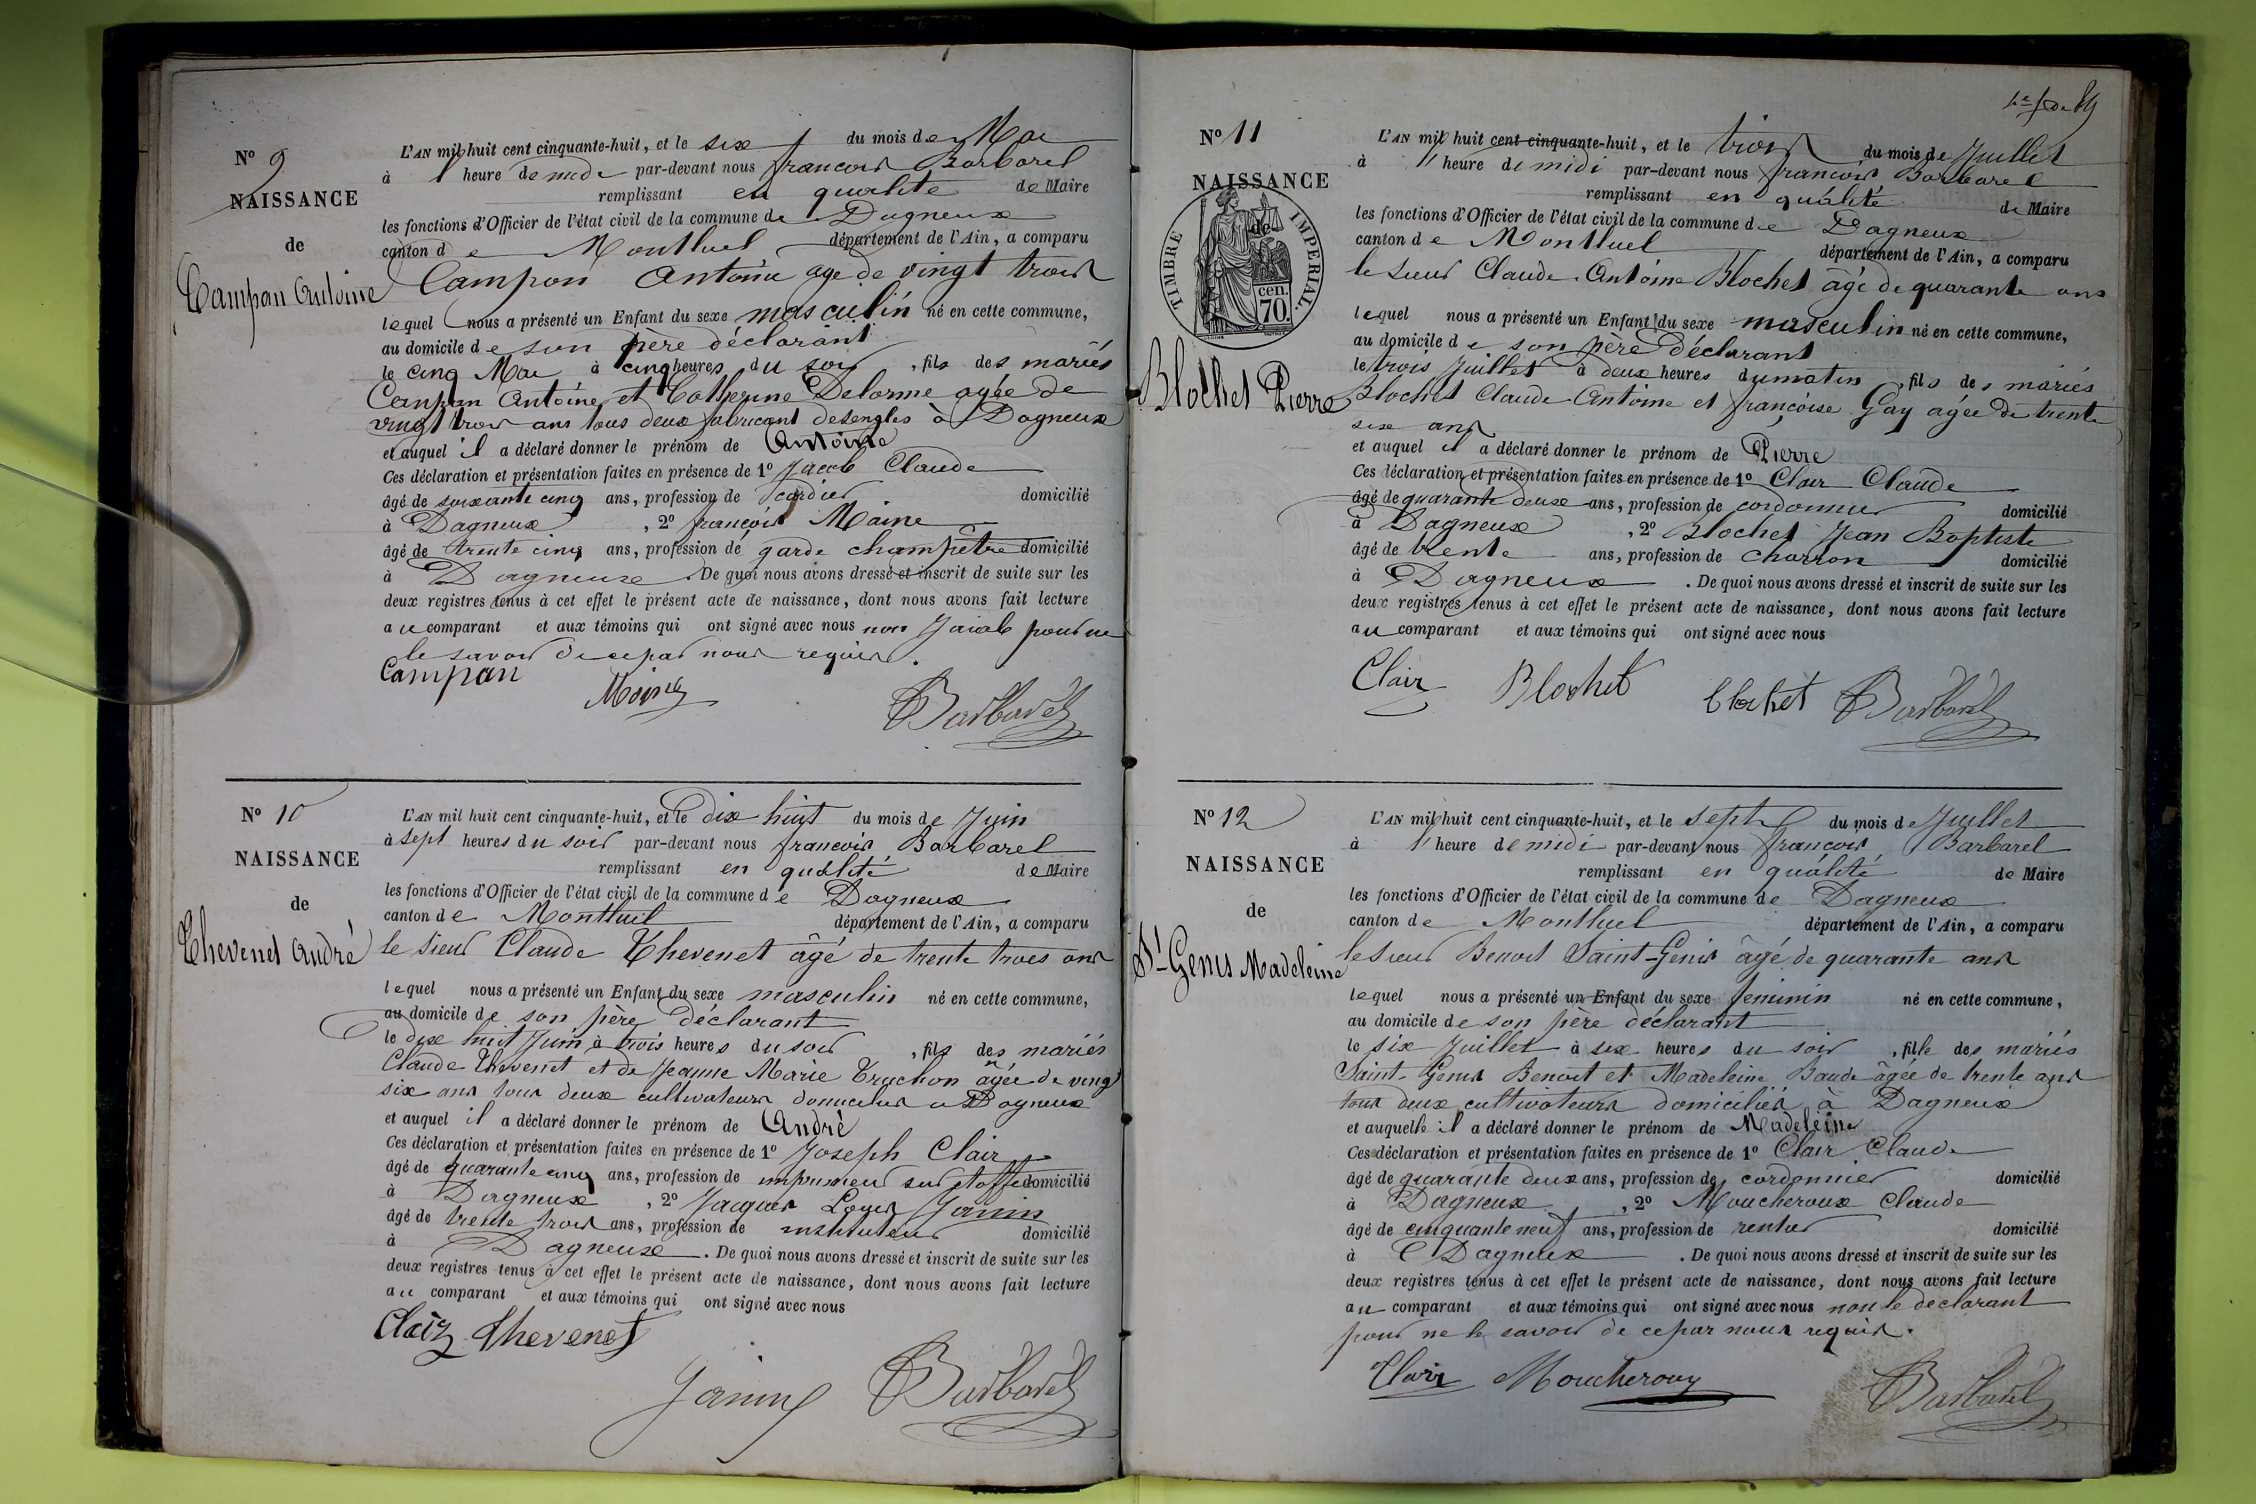 N° 9
NAISSANCE
de
Campan Antoine
L'AN mil huit cent cinquante-huit, et le six du mois de Mai
à l'heure de midi par-devant nous françois Barbarel
remplissant en qualité de Maire
les fonctions d'Officier de l'état civil de la commune de Dagneux
canton de Montluel département de l'Ain, a comparu
Campan Antoine age de vingt trois
lequel nous a présenté un Enfant du sexe masculin né en cette commune,
au domicile de son père déclarant
le cinq Mai à cinq heures du soir, fils des mariés
Campan Antoine et Catherine Delorme agée de
vingt trois ans tous deux fabricant de sengles à Dagneux
et auquel il a déclaré donner le prénom de Antoine
Ces déclaration et présentation faites en présence de 1° Jacob Claude
âgé de soixante cinq ans, profession de cordier domicilié
à Dagneux, 2° françois Moine
âgé de trente cinq ans, profession de garde champêtre domicilié
à Dagneux. De quoi nous avons dressé et inscrit de suite sur les
deux registres tenus à cet effet le présent acte de naissance, dont nous avons fait lecture
au comparant et aux témoins qui ont signé avec nous non Jacob pour ne
le savoir de ce par nous requis.
Campan
Moine
Barbarel
N° 10
NAISSANCE
de
Thevenet André
L'AN mil huit cent cinquante-huit, et le dix huit du mois de Juin
à sept heures du soir par-devant nous françois Barbarel
remplissant en qualité de Maire
les fonctions d'Officier de l'état civil de la commune de Dagneux
canton de Montluel département de l'Ain, a comparu
le sieur Claude Thevenet âgé de trente trois ans
lequel nous a présenté un Enfant du sexe masculin né en cette commune,
au domicile de son père déclarant
le dix huit Juin à trois heures du soir, fils des mariés
Claude Thevenet et de Jeanne Marie Truchon âgée de vingt
six ans tous deux cultivateurs domiciliés à Dagneux
et auquel il a déclaré donner le prénom de André
Ces déclaration et présentation faites en présence de 1° Joseph Clair
âgé de quarante cinq ans, profession de imprimeur sur etoffe domicilié
à Dagneux, 2° Jacques Louis Janin
âgé de trente trois ans, profession de instituteur domicilié
à Dagneux. De quoi nous avons dressé et inscrit de suite sur les
deux registres tenus à cet effet le présent acte de naissance, dont nous avons fait lecture
au comparant et aux témoins qui ont signé avec nous
Clair Thevenet
Janin Barbarel
N° 11
NAISSANCE
de
TIMBRE IMPERIAL.
cen.
70.
Blochet Pierre
L'AN mil huit cent cinquante-huit, et le trois du mois de Juillet
à l'heure de midi par-devant nous françois Barbarel
remplissant en qualité de Maire
les fonctions d'Officier de l'état civil de la commune de Dagneux
canton de Montluel département de l'Ain, a comparu
le sieur Claude Antoine Blochet âgé de quarante ans
lequel nous a présenté un Enfant du sexe masculin né en cette commune,
au domicile de son père déclarant
le trois Juillet à deux heures du matin, fils des mariés
Blochet Claude Antoine et françoise Gay agée de trente
six ans
et auquel il a déclaré donner le prénom de Pierre
Ces déclaration et présentation faites en présence de 1° Clair Claude
âgé de quarante deux ans, profession de cordonnier domicilié
à Dagneux, 2° Blochet Jean Baptiste
âgé de trente ans, profession de charron domicilié
à Dagneux. De quoi nous avons dressé et inscrit de suite sur les
deux registres tenus à cet effet le présent acte de naissance, dont nous avons fait lecture
au comparant et aux témoins qui ont signé avec nous
Clair Blochet blochet Barbarel
N° 12
NAISSANCE
de
St Genis Madeleine
L'AN mil huit cent cinquante-huit, et le sept du mois de Juillet
à l'heure de midi par-devant nous françois Barbarel
remplissant en qualité de Maire
les fonctions d'Officier de l'état civil de la commune de Dagneux
canton de Montluel département de l'Ain, a comparu
le sieur Benoit Saint-Genis âgé de quarante ans
lequel nous a présenté un Enfant du sexe feminin né en cette commune,
au domicile de son père déclarant
le six Juillet à six heures du soir, fille des mariés
Saint-Genis Benoit et Madeleine Baude âgée de trente ans
tous deux cultivateurs domiciliés à Dagneux
et auquelle il a déclaré donner le prénom de Madeleine
Ces déclaration et présentation faites en présence de 1° Clair Claude
âgé de quarante deux ans, profession de cordonnier domicilié
à Dagneux, 2° Moucheroux Claude
âgé de cinquante neuf ans, profession de rentier domicilié
à Dagneux. De quoi nous avons dressé et inscrit de suite sur les
deux registres tenus à cet effet le présent acte de naissance, dont nous avons fait lecture
au comparant et aux témoins qui ont signé avec nous non le declarant
pour ne le savoir de ce par nous requis.
Clair Moucheroux Barbarel